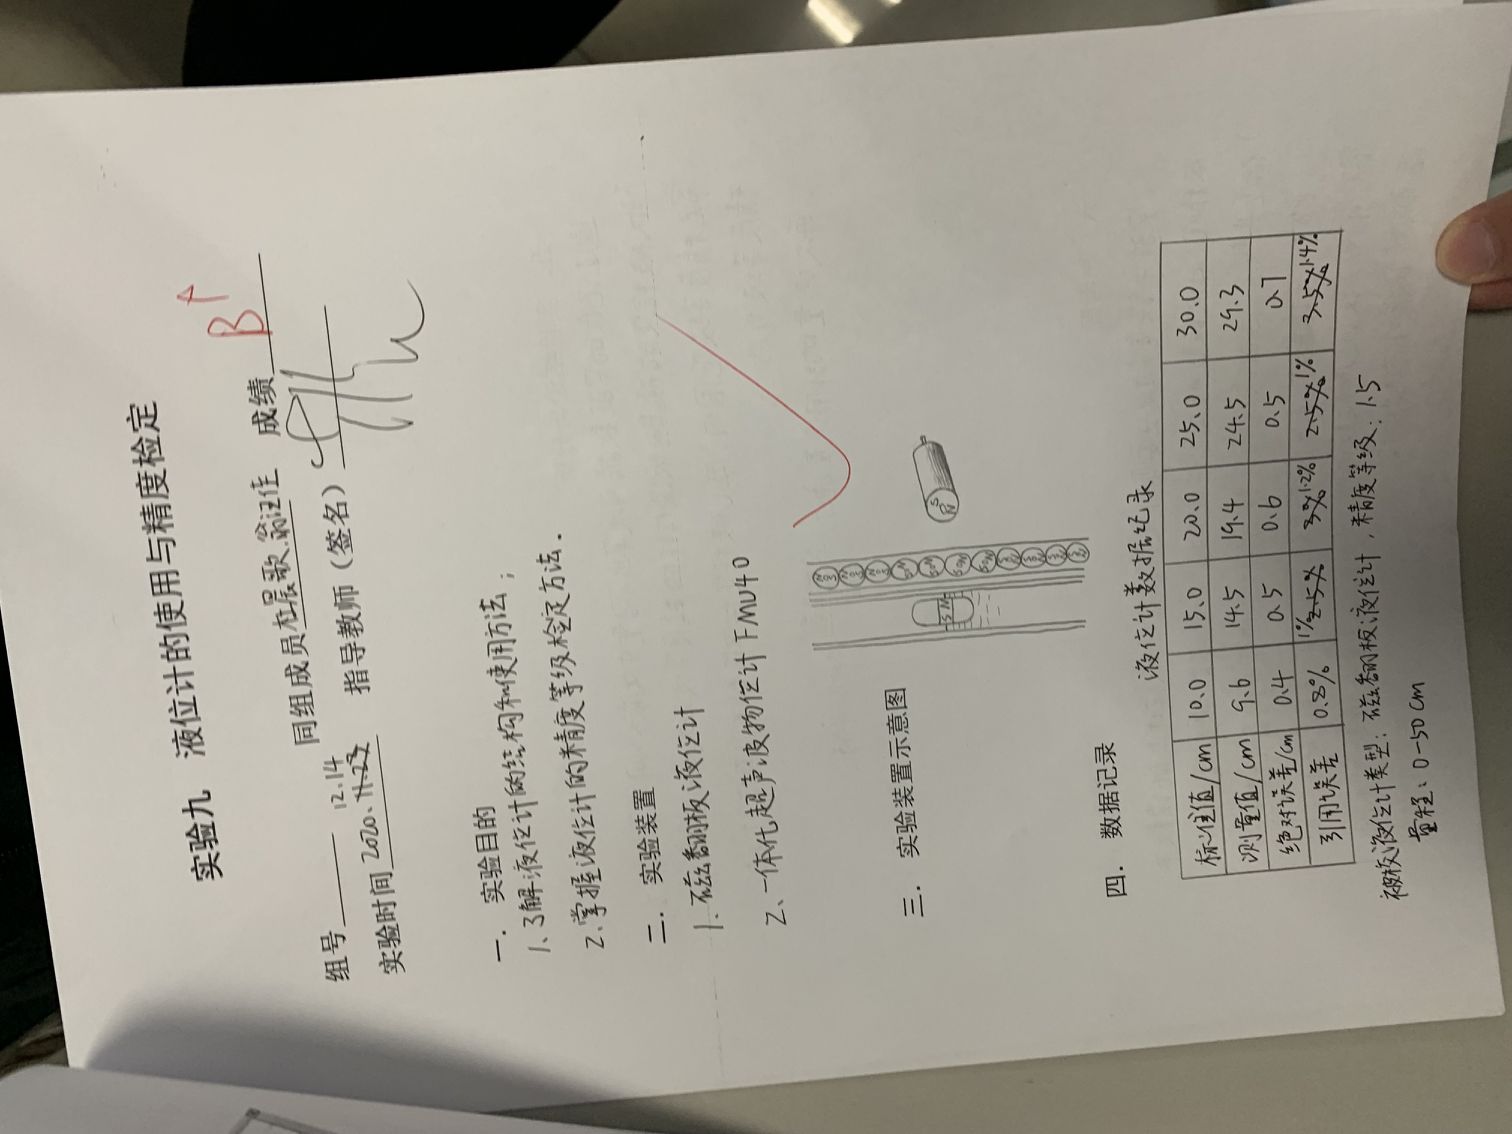 实验九 液位计的使用与精度检定
组号 同组成员杜晨歌.翁汪佳 成绩 B+
实验时间 2020.11.23 12.14 指导教师（签名）
一. 实验目的
1、了解液位计的结构和使用方法；
2、掌握液位计的精度等级检定方法.
二. 实验装置
1、磁翻板液位计
2、一体化超声波物位计 FMU40
三. 实验装置示意图
S N
四. 数据记录
液位计数据纪录
标准值/cm 10.0 15.0 20.0 25.0 30.0
测量值/cm 9.6 14.5 19.4 24.5 29.3
绝对误差/cm 0.4 0.5 0.6 0.5 0.7
引用误差 0.8% 1% 2.5% 3% 1.2% 2.5% 1% 3.5% 1.4%
被校液位计类型：磁翻板液位计，精度等级：1.5
量程：0-50cm